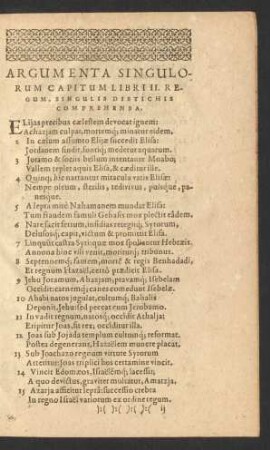 ARGUMENTA SINGULO-
RUM CAPITUM LIBRI II. RE-
GUM, SINGULIS DISTICHIS
COMPREHENSA.
ELijas precibus cælestem devocat ignem:
Achazjam culpat, mortemq; minatur eidem.
2 In cælum assumto Elijæ succedit Elisa:
Jordanem findit, fontiq; medetur aquarum.
3 Joramo & sociis bellum intentante Moabo,
Vallem replet aquis Elisa, & cæditur ille.
4 Quinq; hic narrantur miracula vatis Elisæ:
Nempe oleum, sterilis, redivivus, pulsque, pa-
nesque.
5 A lepra mitè Nahamanem mundat Elisa:
Tum fraudem famuli Gehasis mox plectit eâdem.
6 Nare facit ferrum, insidias retegitq; Syrorum,
Delusosq; capit, victum & promittit Elisa.
7 Linquit castra Syrus quæ mox spoliantur Hebræis.
Annona hinc vili venit, moritur q; tribunus.
8 Septennemq; famem, mortē & regis Benhadadi,
Et regnum Hazaël, cernō prædicit Elisa.
9 Jehu Joramum, Achazjam, pravamq; Isebelam
Occidit: carnemq; canes comedunt Isebelæ.
10 Ahabi natos jugulat, cultumq; Bahalis
Deponit, Jehu: sed peccat cum Jerobamo.
11 Invadit regnum, natosq; occidit Athaljat
Eripitur Joas, fit rex; occiditur illa.
12 Joas sub Jojada templum cultumq; reformat.
Postea degenerans, Hazaëlem munere placat.
13 Sub Joachazo regnum vastatur Syrorum
Atteritur: Joas triplici hos certamine vincit.
14 Vincit Edomæos, Israëlemq; lacessit,
A quo devictus, graviter mulctatur, Amazja.
15 Azarja afficitur leprâ: successio crebra
In regno Israël variorum ex ordine regum.